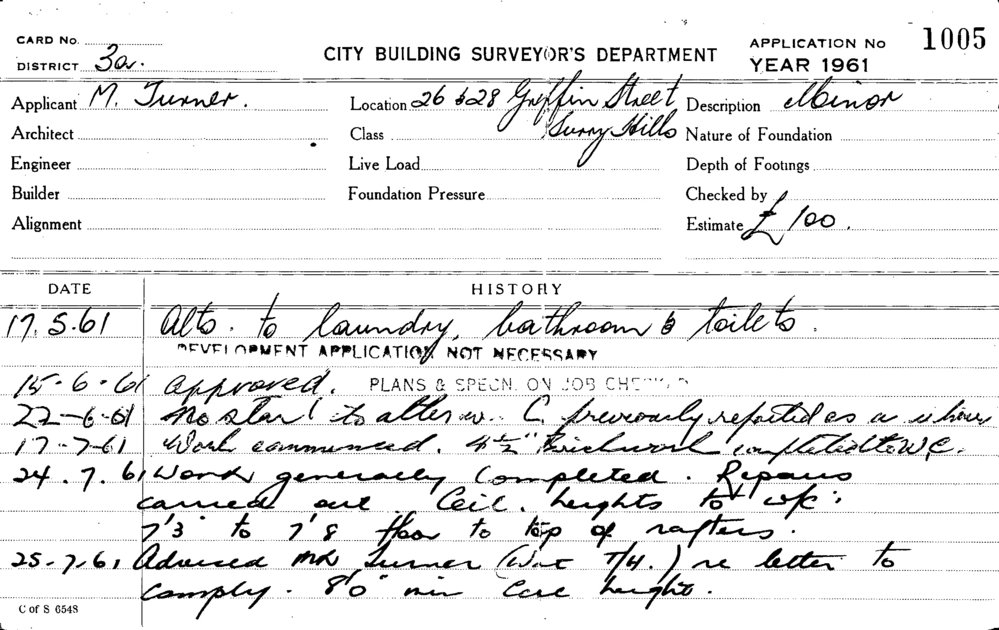 CARD No.
DISTRICT 3a.
CITY BUILDING SURVEYOR'S DEPARTMENT
APPLICATION No 1005
YEAR 1961
Applicant M. Turner.
Location 26 & 28 Griffin Street
Surry Hills
Description Minor
Architect
Class
Nature of Foundation
Engineer
Live Load
Depth of Footings
Builder
Foundation Pressure
Checked by
Alignment
Estimate £100.
DATE HISTORY
17.5.61 Alts. to laundry, bathroom & toilets.
DEVELOPMENT APPLICATION NOT NECESSARY
15-6-61 approved. PLANS & SPECN. ON JOB CHECKED
22-6-61 No start to alter w. C. previously reported as a
17-7-61 Work commenced. 4½" Brickwork completed to W.C.
24.7.61 Work generally Completed. Repairs
carried out Ceil. heights to w/c:
7'3" to 7'8 floor to top of rafters.
25.7.61 Advised Mr Turner T/H.) re letter to
comply. 8'0" min height.
C of S 6548